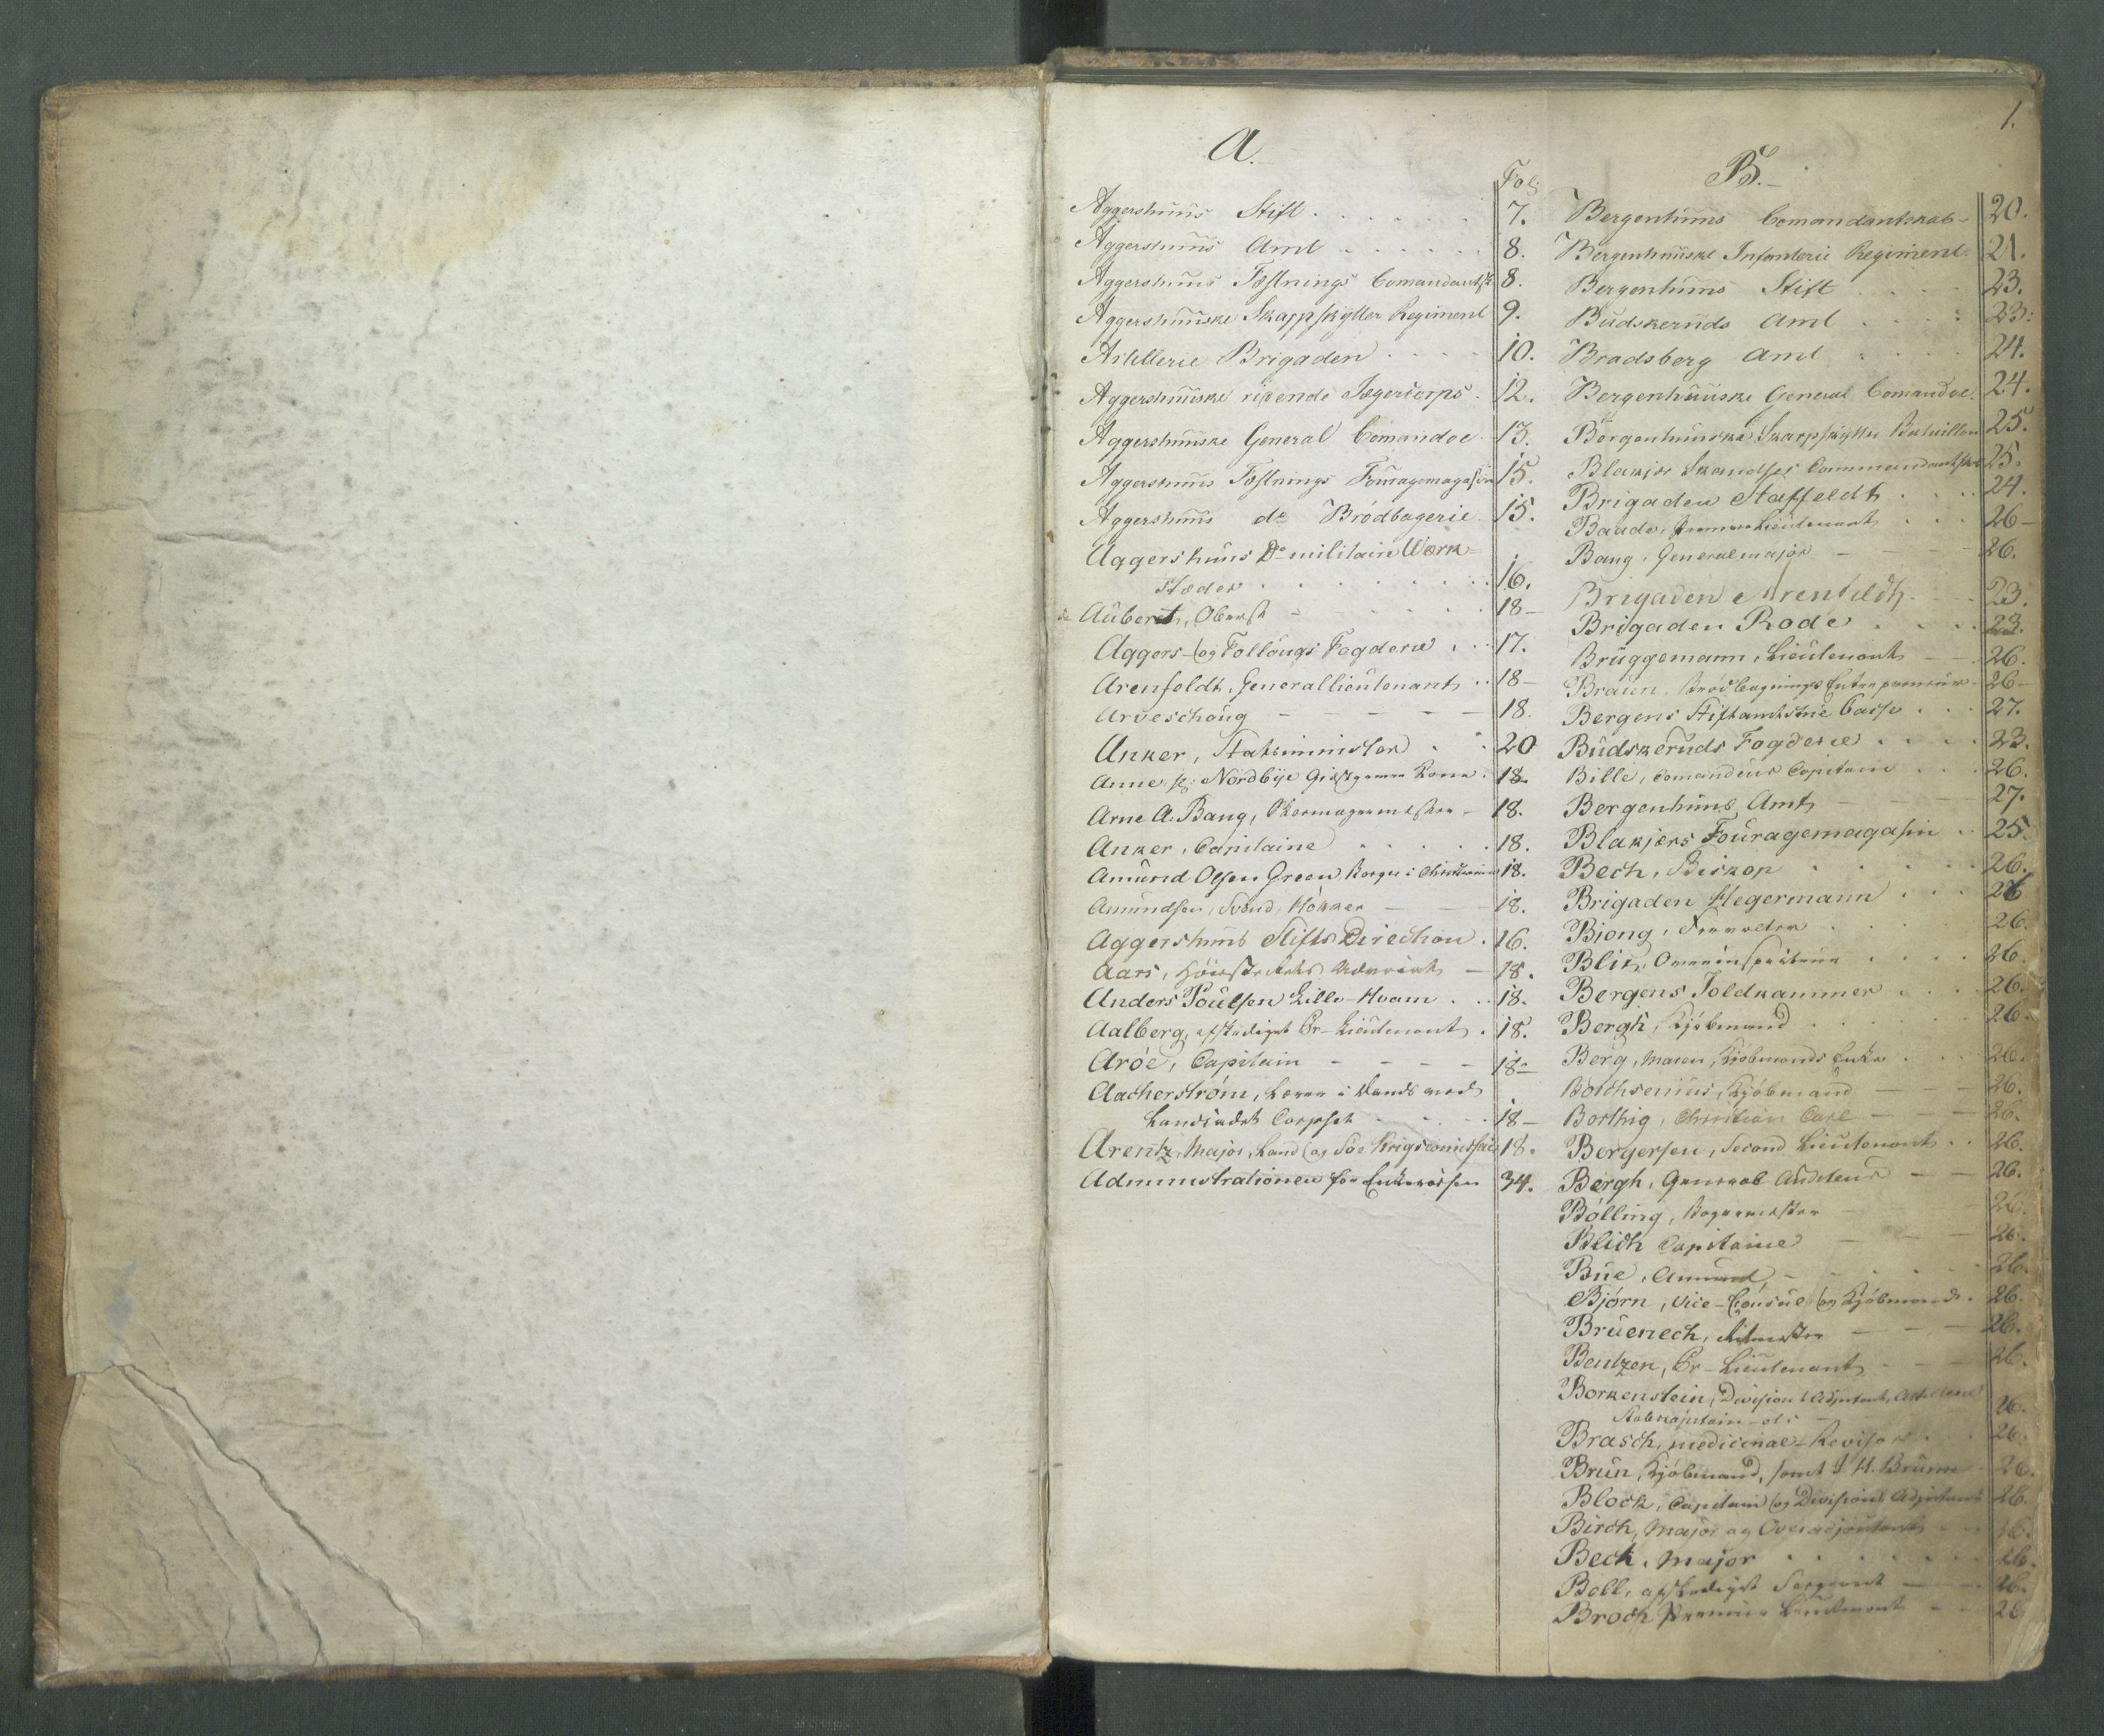 1.
A.
Fol:
Aggershuus Stift . . . . . . 7.
Aggershuus Amt . . . . . 8.
Aggershuus Fæstnings Comandantsk 8.
Aggershuuske Skarpskytter Regiment 9.
Artillerie Brigaden . . . . 10.
Aggershuuske ridende Jægercorps . 12.
Aggershuuske General Comandoe . 13.
Aggershuus Fæstnings Fouragemagasin 15.
Aggershuus do Brödbagerie . 15.
Aggershuus Do militair Værk-
stæder . . . . . . . . 16.
de Aubert, Oberst - - - - - - 18-
Aggers- og Follougs Fogderie . . . 17.
Arenfeldt, Generallieutenant . . 18-
Arveschoug - - - - - 18.
Anker, Statsminister . . 20
Anne sl: Nordbye Giæstgiver Kone . 18.
Arne A. Bang, Skomagermester - 18.
Anker, Capitaine . . . . . 18.
Amund Olsen Green, Borger i Christiania 18.
Amundsen, Svend, Hökker - - - 18.
Aggershuus Stifts Direction . 16.
Aars, Höiesterets Advocat - 18.
Anders Poulsen Lille-Hvam . . . 18.
Aalberg, afskediget Pr-Lieutenant . 18.
Aröe, Capitain - - - - - 18-
Aacherström, Lærer i Vands ved
Landcadet Corpset - - - . . 18-
Arentz, Major, Land og Söe Krigscomissair 18.
Administrationen for Enkekassen 34.
B.-
Bergenhuus Comandantskab - 20.
Bergenhuuske Infanterie Regiment . 21.
Bergenhuus Stift . . . . 23.
Budskeruds Amt . . . . 23.
Bradsberg Amt . . . . . 24.
Bergenhuuske General Comandoe . 24.
Bergenhuuske Skarpskytter Batuillon 25.
Blakjer Skandses Commandantskab 25.
Brigaden Staffeldt . . . . 24.
Baude, Premier Lieutenant . . . 26-
Bang, Generalmajor - - - - 26.
Brigaden Arenfeldt . . . 23.
Brigaden Rode . . . . 23.
Brüggemann, Lieutenant - - 26.
Braun, Brödbagnings Enterpreneur - 26-
Bergens Stiftamtstue Casse . . . 27.
Budskeruds Fogderie . . . . 23.
Bille, Comandeur Capitain . . . 26.
Bergenhuus Amt - - - - 27.
Blakjers Fouragemagasin . . 25.
Bech, Biskop . . . . . 26.
Brigaden Hegermann . . . 26
Bjong, Forvalter . . . . 26.
Blix, Overinspecteur . . . . 26.
Bergens Toldkammer . . . 26.
Bergh, Kjöbmand . . . . . . 26.
Berg, Maren, Kjöbmands Enke . . . 26.
Borchsenius, Kjöbmand - - - 26.
Borthig, Christian Carl - - - 26.
Bergersen, Second Lieutenant . . 26.
Bergh, General Auditeur - - 26.
Bölling, Bogtrykker - - 26.
Blich Capitaine - - - 26.
Bue, Amund, - - - . . . 26.
Björn, Vice-Consul og Kjöbmand . 26.
Bruenech, Ritmester - - - 26.
Bentzen, Pr-Lieutenant - - - 26.
Borkenstein, Divisions Adjutant,
Stabscapitain - - - 26.
Brasch, medicinal-Revisor . . . 26.
Brun, Kjöbmand, samt J H. Brunn - 26.
Block, Capitain og Divisions Adjutant 26.
Birch, Major og Overadjoutant - - 26.
Beck, Major . . . . . . . 26.
Boll, afskediget Sergeant - - 26.
Broch Premier Lieutenant - - 26